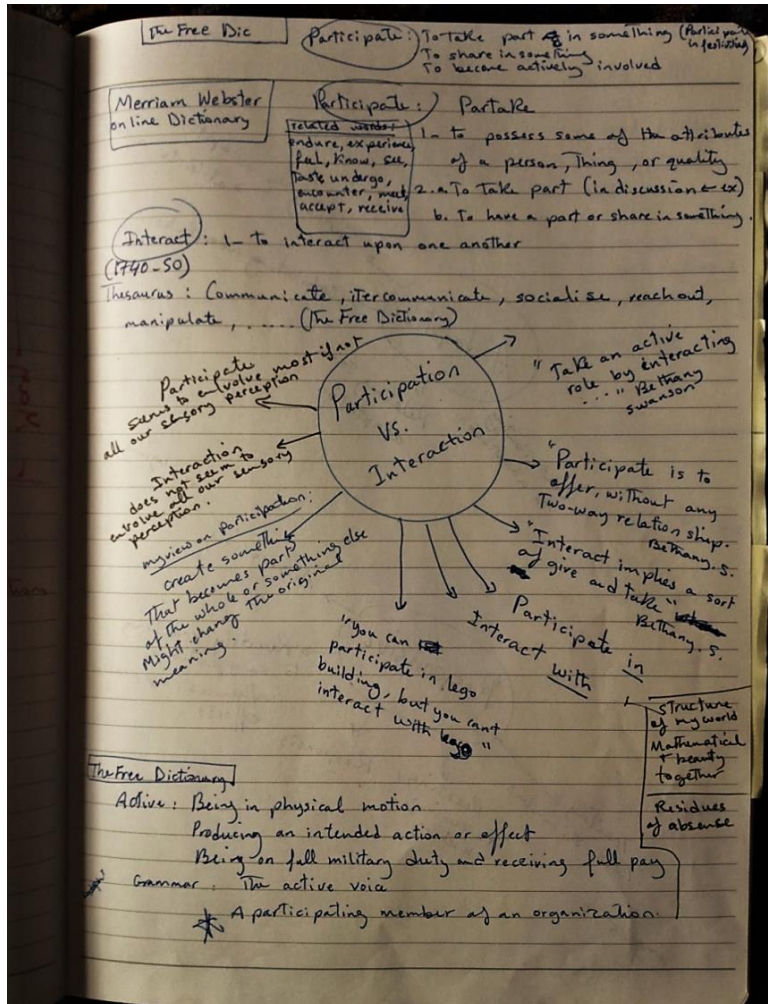 The Free Dic
Participate: To take part in something (Participate
in festivities
To share in something
To become actively involved
Merriam Webster
online Dictionary
Participate: Partake
related words:
endure, experience,
feel, know, see,
taste undergo,
encounter, meet,
accept, receive
1- to possess some of the attributes
of a person, Thing, or quality
2. a. To take part (in discussion ← ex)
b. To have a part or share in something.
Interact: 1- to interact upon one another
(1740-50)
Thesaurus: Communicate, itercommunicate, socialise, reach out,
manipulate, ..... (The Free Dictionary)
Participation
Vs.
Interaction
Participate
seems to envolve most if not
all our sensory perception
Interaction
does not seem to
envolve all our sensory
perception.
my view on participation:
create something
That becomes part
of the whole or something else
Might change the original
meaning.
"you can
participate in lego
building, but you can't
interact with lego"
Interact with
Participate in
"Interact implies a sort
of give and take"
Bethany. S.
"Participate is to
offer, without any
Two-way relationship.
Bethany. S.
"Take an active
role by interacting
....." Bethany
swanson
structure
of my world
Mathematical
+ beauty
together
Residues
of absense
The Free Dictionary
Active: Being in physical motion
Producing an intended action or effect
Being on full military duty and receiving full pay
Grammar: The active voice
A participating member of an organization.